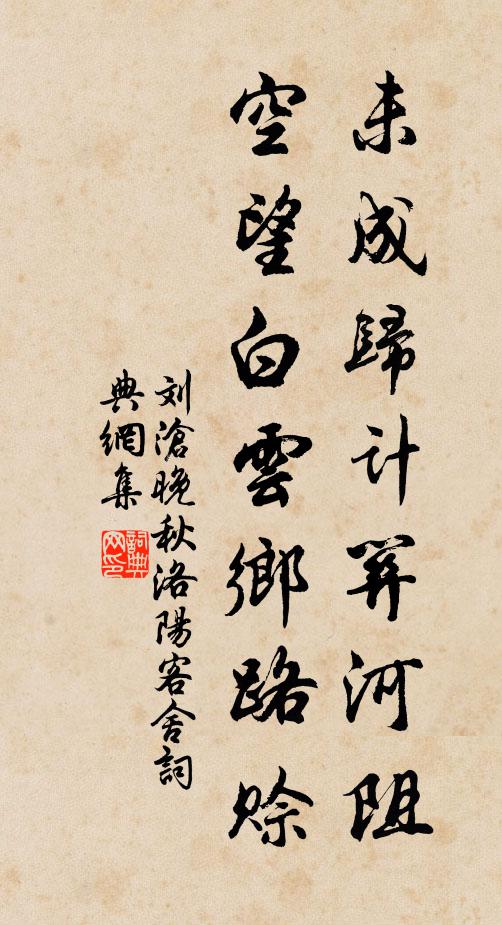 未成歸计関河阻
空望白雲鄉路賒
刘滄晚秋洛陽客舍詞
典網集
詞典
网印